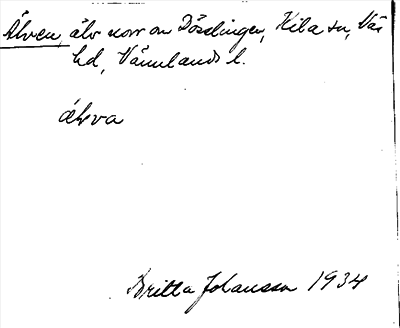 Älven, älv norr om Dösslingen, Kila sn,
hd, Värmlands l.
älva
Britta Johansson 1934